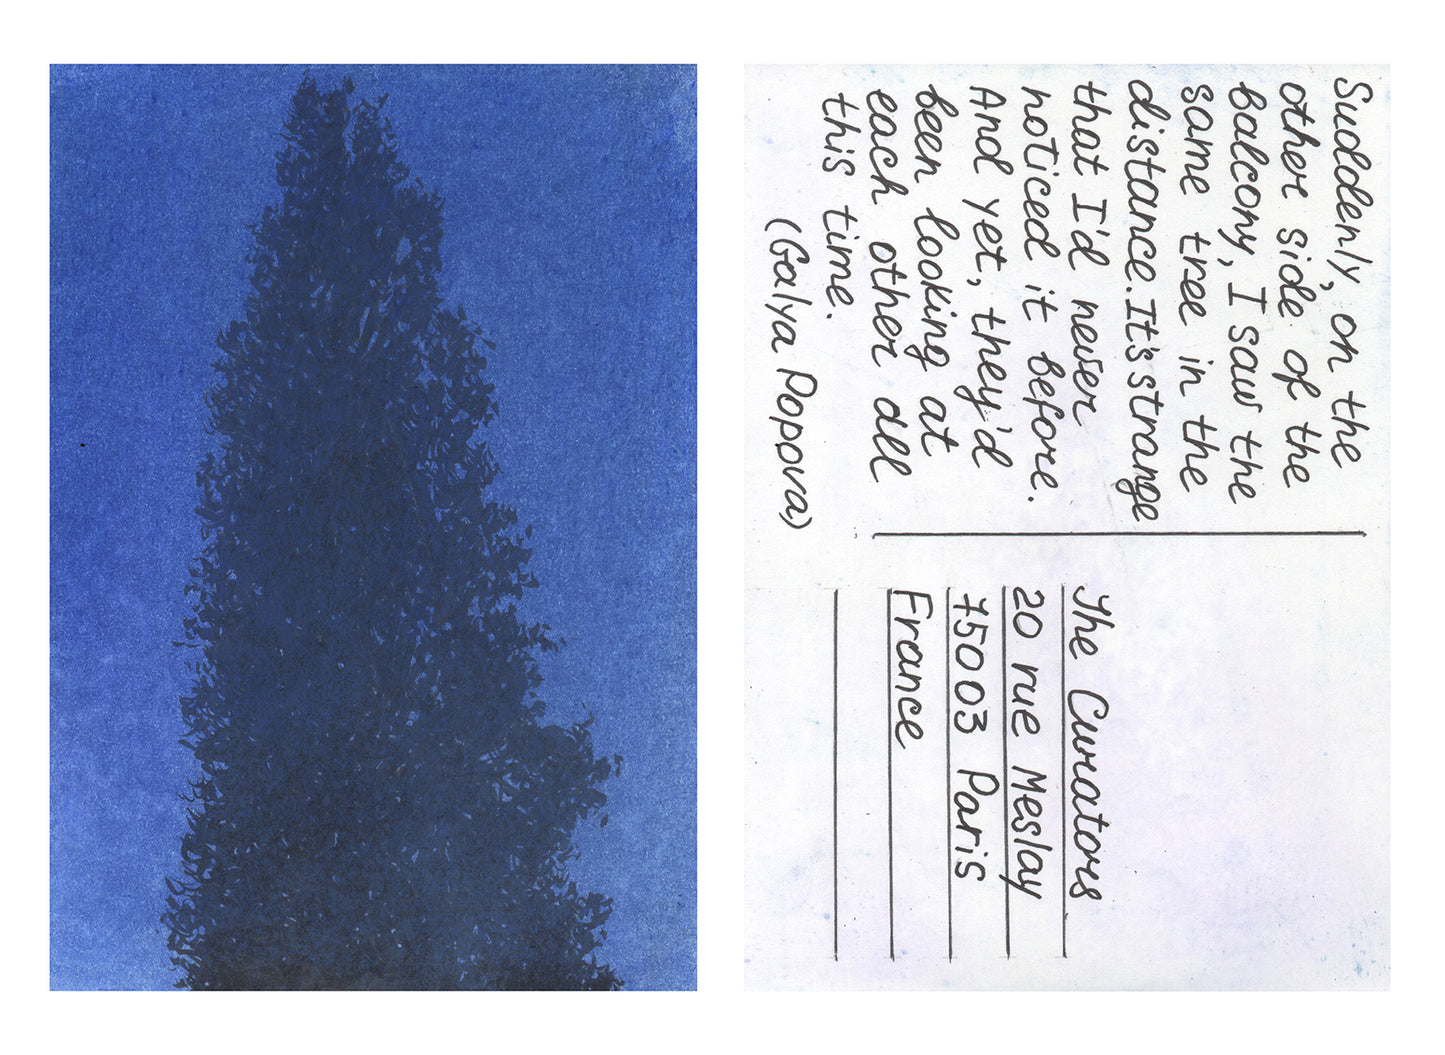 Suddenly, on the
other side of the
balcony, I saw the
same tree in the
distance. It's strange
that I'd never
noticed it before.
And yet, they'd
been looking at
each other all
this time.
(Galya Popova)
The Curators
20 rue Meslay
75003 Paris
France